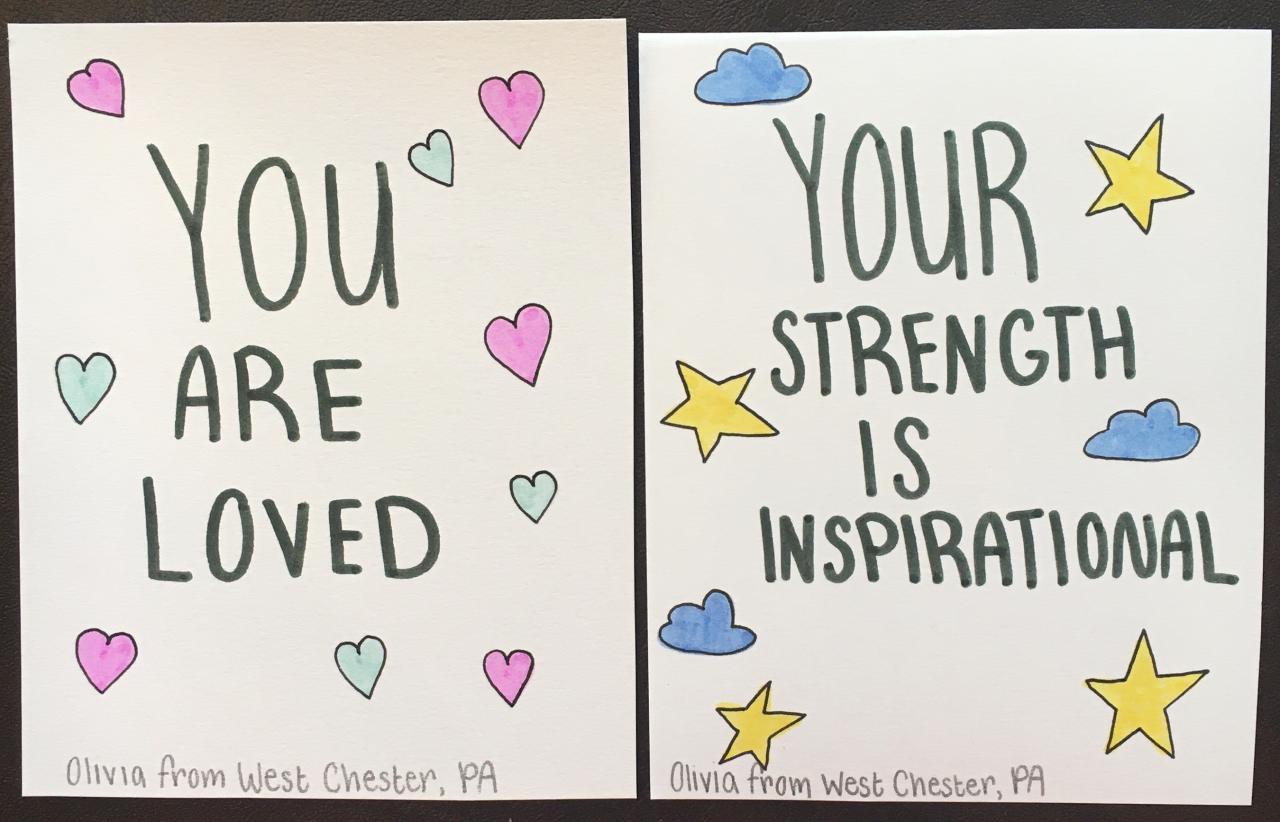 YOU
ARE
LOVED
Olivia from West Chester, PA
YOUR
STRENGTH
IS
INSPIRATIONAL
Olivia from West Chester, PA